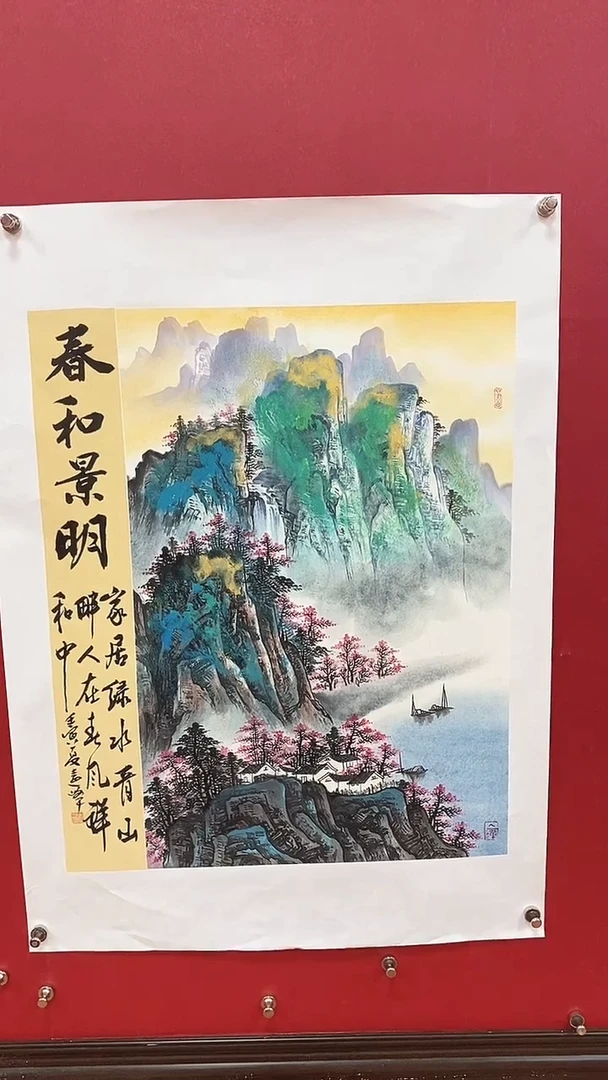 春和景明
家居绿水青山
畔人在春风祥
和中
壬寅夏